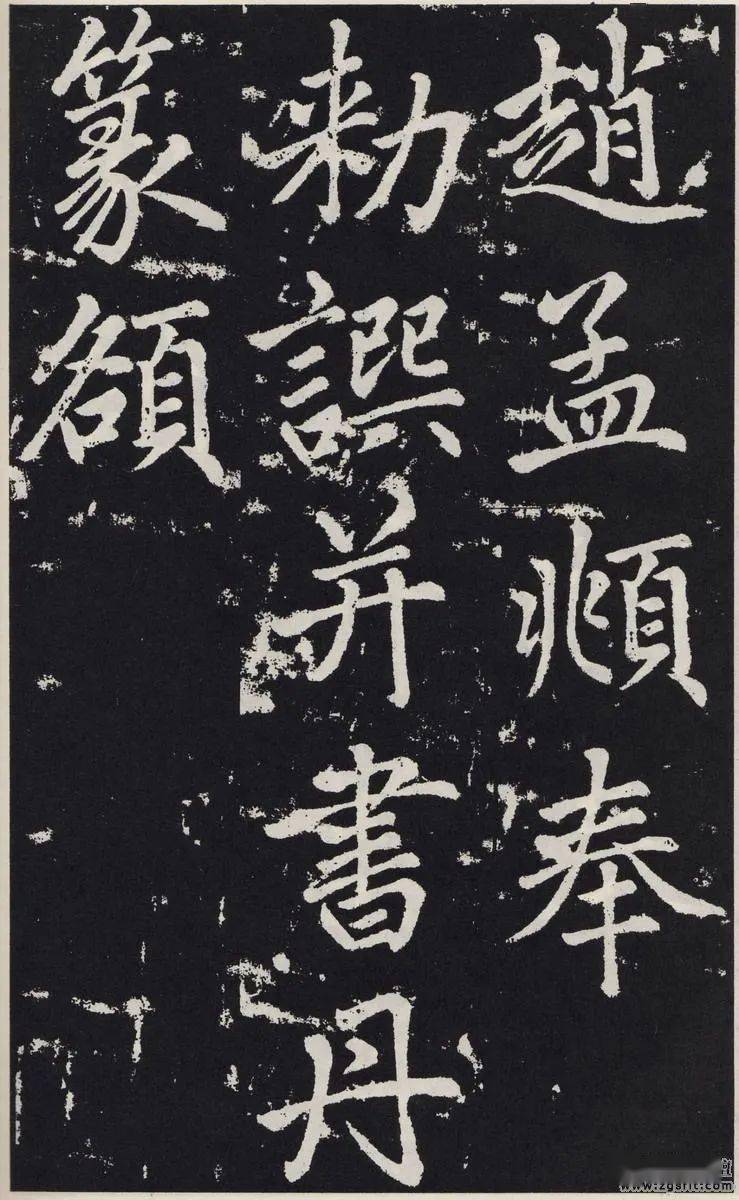 趙孟頫奉
勑譔并書丹
篆額
www.zgsfit.com